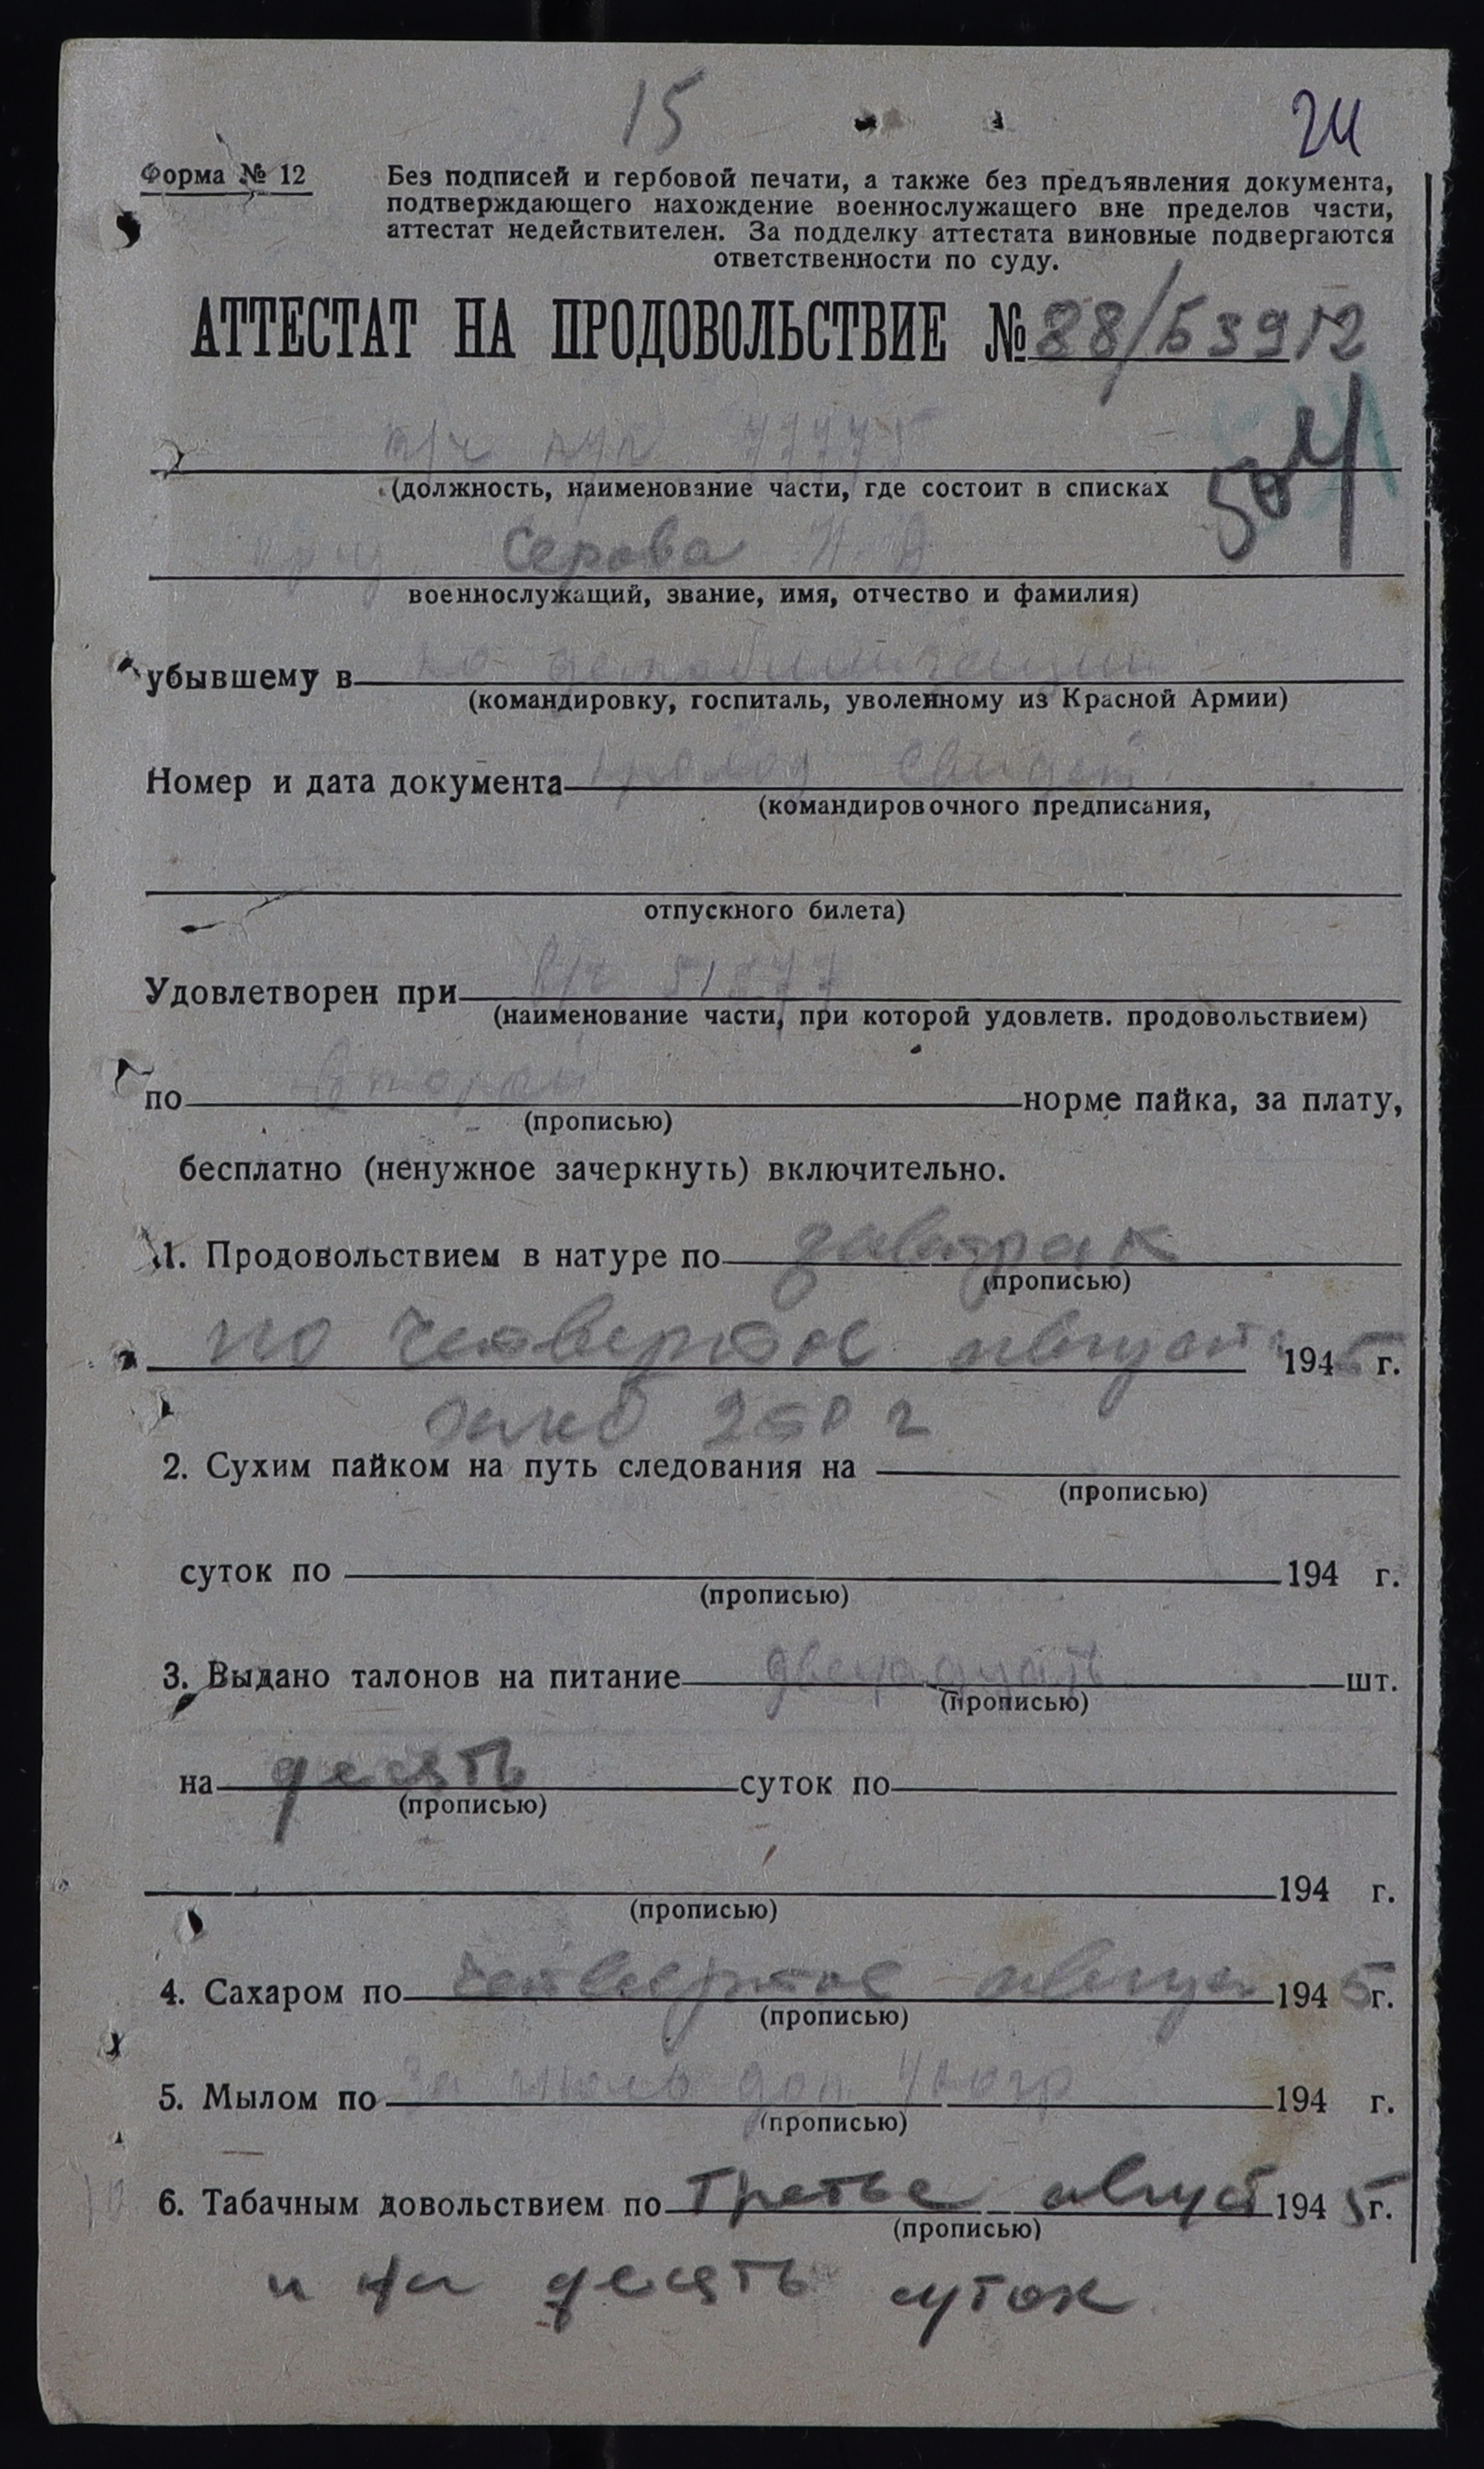 15
24
Форма № 12
Без подписей и гербовой печати, а также без предъявления документа,
подтверждающего нахождение военнослужащего вне пределов части,
аттестат недействителен. За подделку аттестата виновные подвергаются
ответственности по суду.
АТТЕСТАТ НА ПРОДОВОЛЬСТВИЕ № 88/Б3912
(должность, наименование части, где состоит в списках
Серова Н Д
военнослужащий, звание, имя, отчество и фамилия)
убывшему в по демобилизации
(командировку, госпиталь, уволенному из Красной Армии)
Номер и дата документа проход свидет.
(командировочного предписания,
отпускного билета)
Удовлетворен при в/ч 51577
(наименование части, при которой удовлетв. продовольствием)
по второй норме пайка, за плату,
(прописью)
бесплатно (ненужное зачеркнуть) включительно.
1. Продовольствием в натуре по завтрак
(прописью)
по четвертое август 1945 г.
2. Сухим пайком на путь следования на
(прописью)
суток по 194 г.
(прописью)
3. Выдано талонов на питание двенадцать шт.
(прописью)
на десять суток по
(прописью)
194 г.
(прописью)
4. Сахаром по четвертое август 1945 г.
(прописью)
5. Мылом по за июль 194 г.
(прописью)
6. Табачным довольствием по третье август 1945 г.
(прописью)
и на десять суток